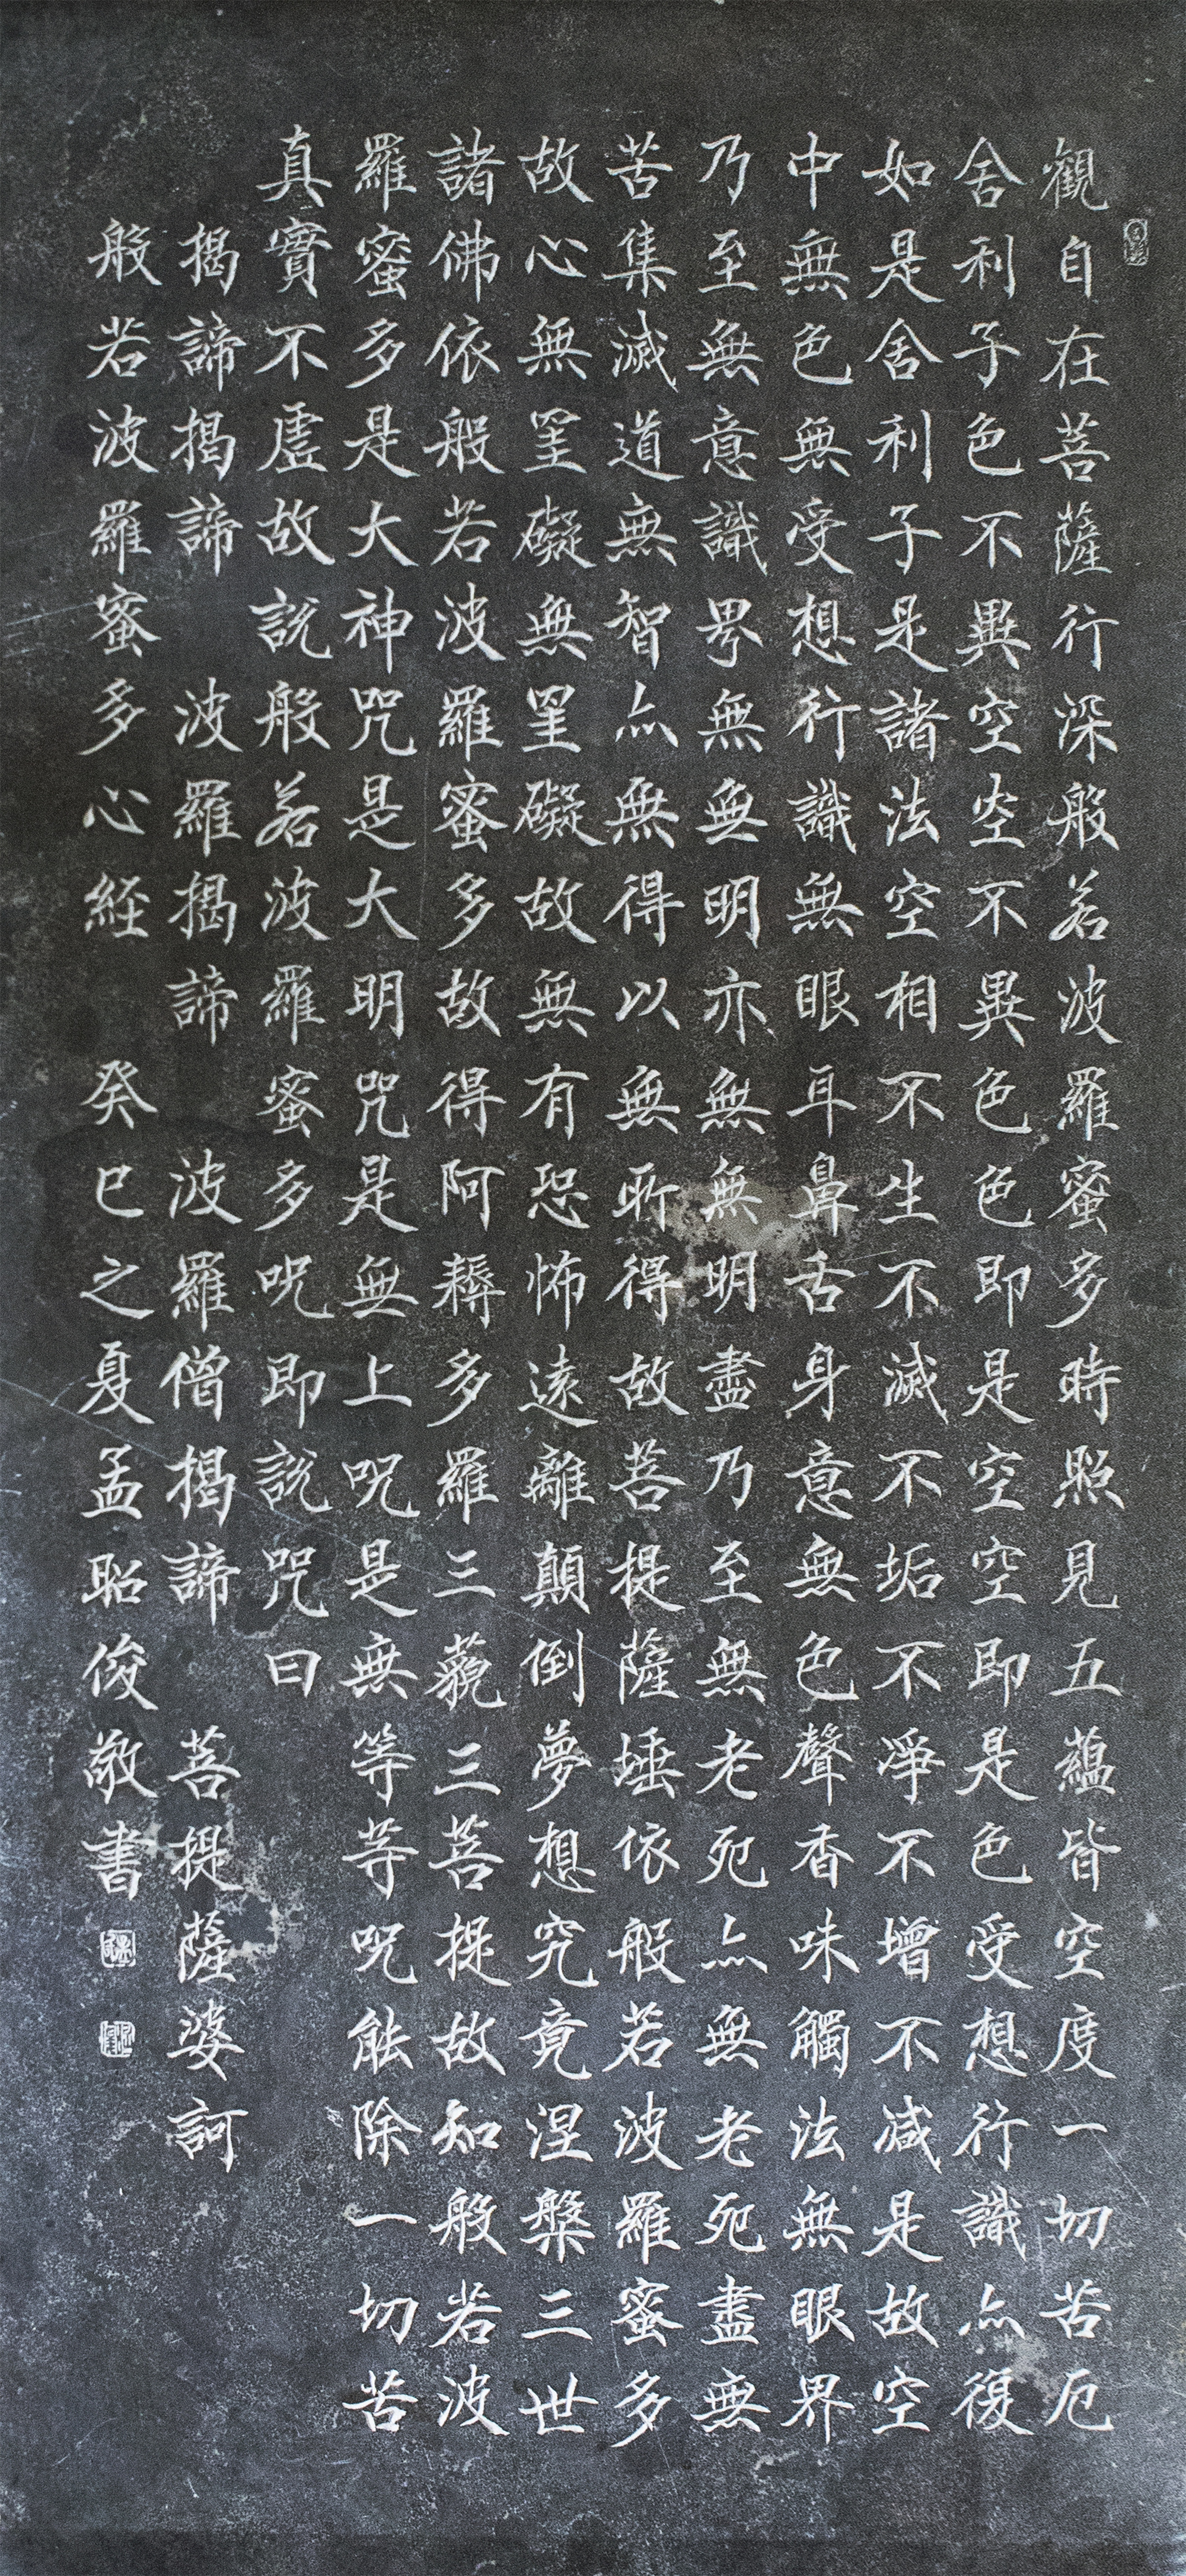 觀自在菩薩行深般若波羅蜜多時照見五蘊皆空度一切苦厄
舍利子色不異空空不異色色即是空空即是色受想行識亦復
如是舍利子是諸法空相不生不滅不垢不淨不增不減是故空
中無色無受想行識無眼耳鼻舌身意無色聲香味觸法無眼界
乃至無意識界無無明亦無無明盡乃至無老死亦無老死盡無
苦集滅道無智亦無得以無所得故菩提薩埵依般若波羅蜜多
故心無罣礙無罣礙故無有恐怖遠離顛倒夢想究竟涅槃三世
諸佛依般若波羅蜜多故得阿耨多羅三藐三菩提故知般若波
羅蜜多是大神咒是大明咒是無上呪是無等等呪能除一切苦
真實不虛故說般若波羅蜜多呪即說咒曰
揭諦揭諦 波羅揭諦 波羅僧揭諦 菩提薩婆訶
般若波羅蜜多心経 癸巳之夏孟昭俊敬書